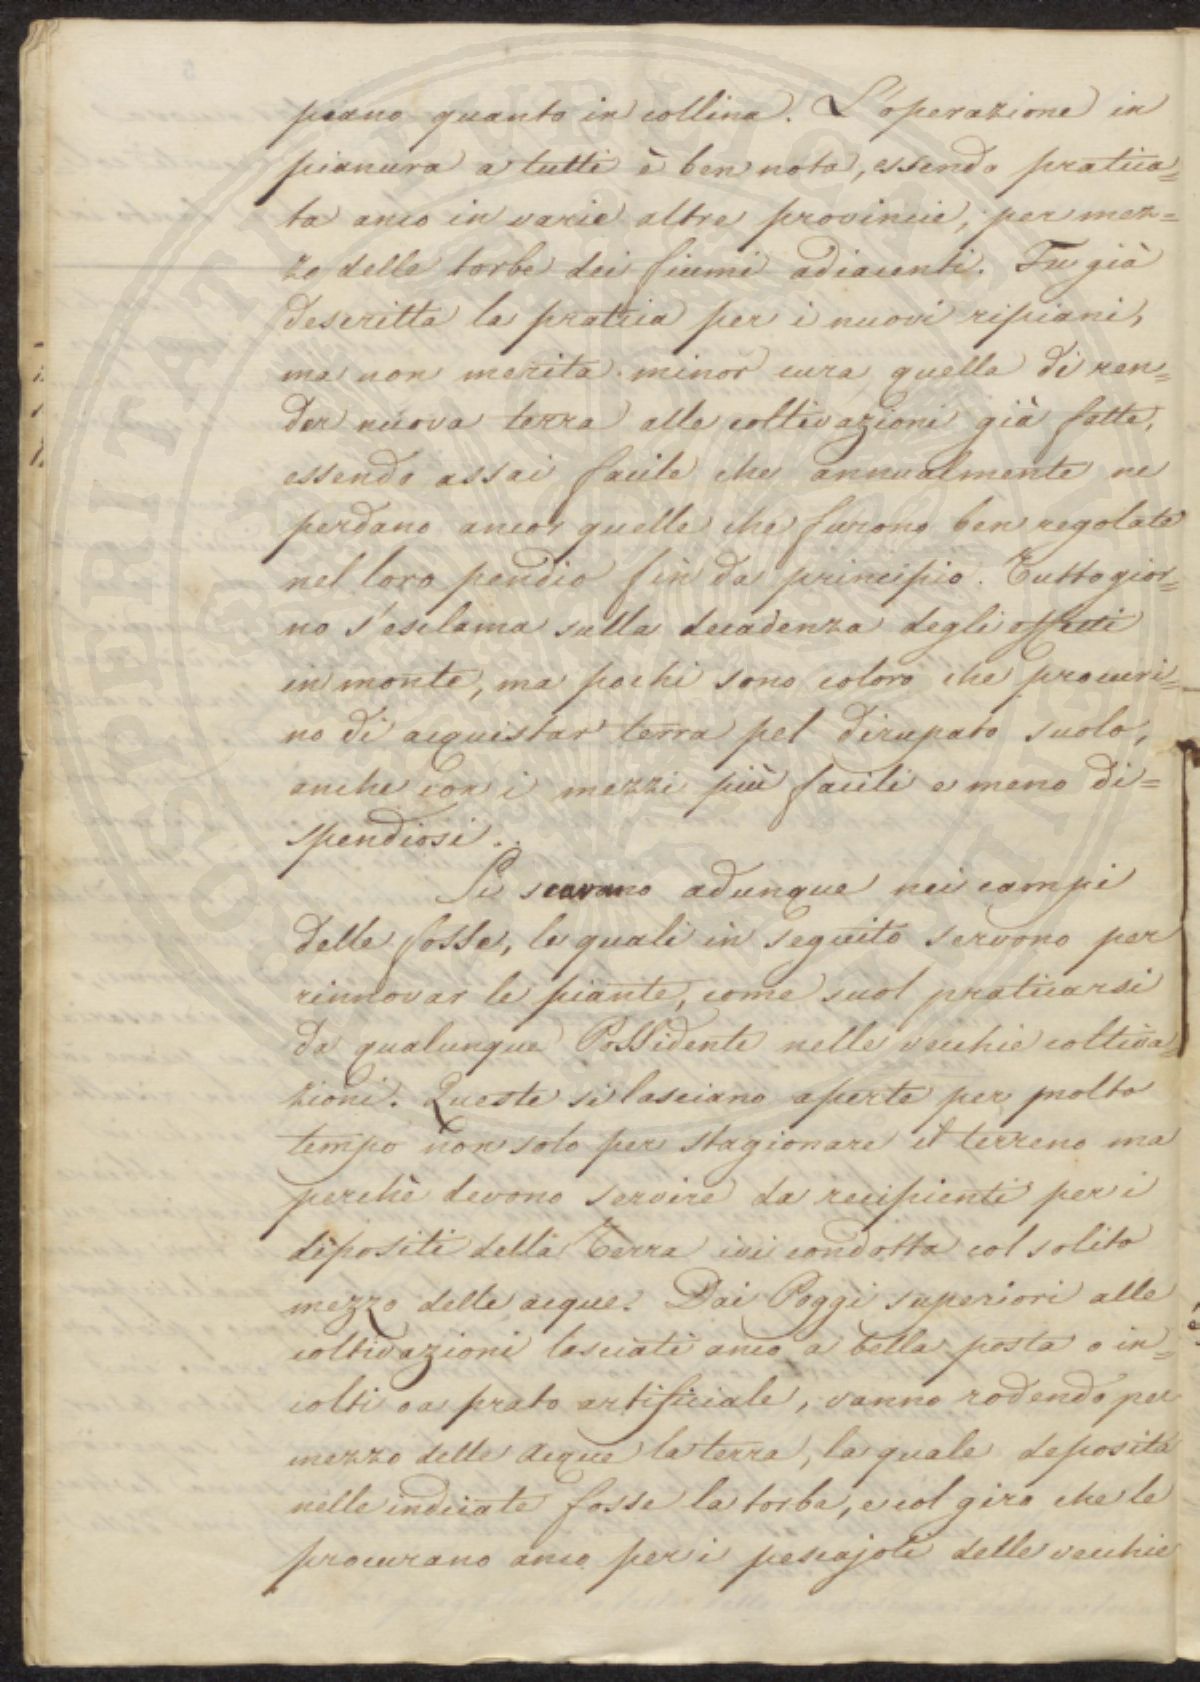 piano quanto in collina. L'operazione in
pianura a tutti è ben nota, essendo pratica=
ta anco in varie altre provincie, per mez=
zo delle torbe dei fiumi adiacenti. Fu già
descritta la pratica per i nuovi ripiani,
ma non merita minor cura quella di ren=
der nuova terra alle coltivazioni già fatte,
essendo assai facile che annualmente ne
perdano anco quelle che furono ben regolate
nel loro pendio fin da principio. Tutto gior=
no s'esclama sulla decadenza degli effetti
in monte, ma pochi sono coloro che procuri=
no di acquistar terra pel dirupato suolo,
anche con i mezzi più facili e meno di=
spendiosi.
Si scavano adunque nei campi
delle fosse, le quali in seguito servono per
rinnovar le piante, come suol praticarsi
da qualunque Possidente nelle vecchie coltiva=
zioni. Queste si lasciano aperte per molto
tempo non solo per stagionare il terreno ma
perchè devono servire da recipienti per i
depositi della Terra ivi condotta col solito
mezzo delle acque. Dai Poggi superiori alle
coltivazioni lasciati anco a bella posta o in=
colti o a prato artificiale, vanno rodendo per
mezzo delle acque la terra, la quale deposita
nelle indicate fosse la torba, e col giro che le
procurano anco per i pescajoli delle vecchie
PROSPERITATI PUBLICAE